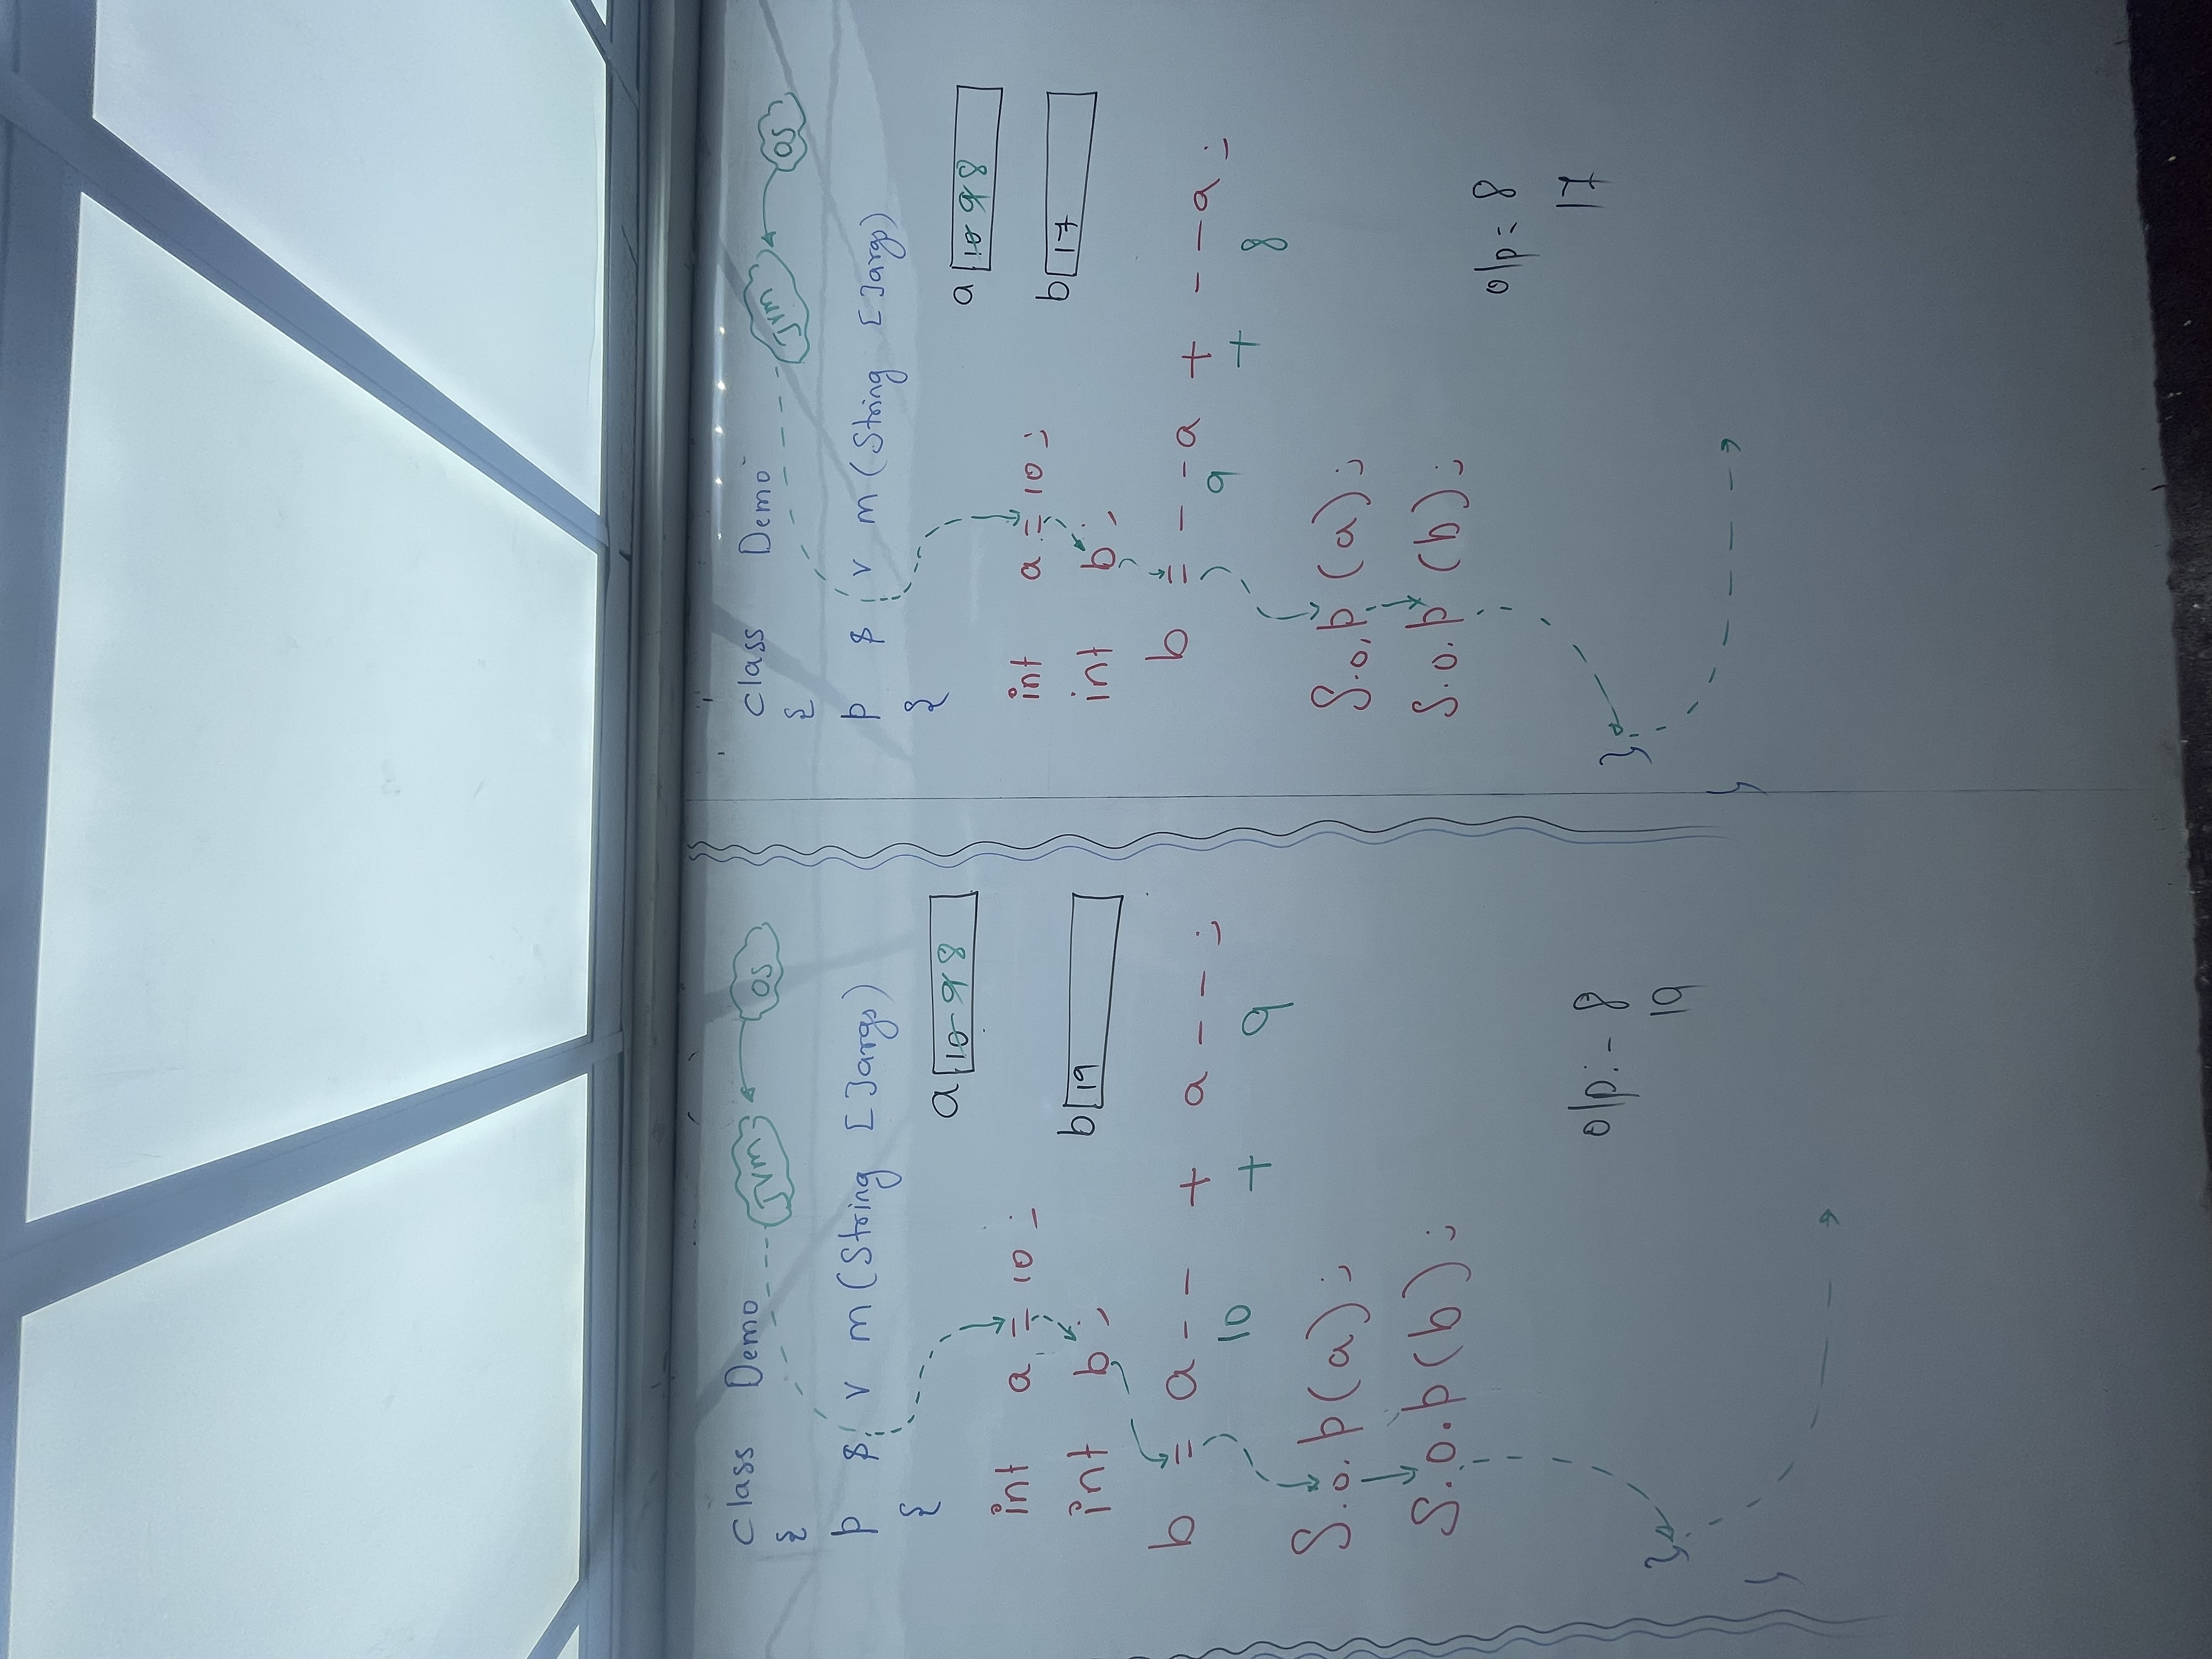 class Demo JVM OS
{
p s v m (String []args)
{
a 10 9 8
int a = 10;
int b;
b 19
b = a-- + a--;
10 + 9
S.o.p(a);
S.o.p(b);
o/p:- 8
19
}
}
class Demo JVM OS
{
p s v m (String []args)
{
a 10 9 8
int a = 10;
b 17
int b;
b = --a + --a;
9 + 8
S.o.p (a);
S.o.p (b);
o/p= 8
17
}
}